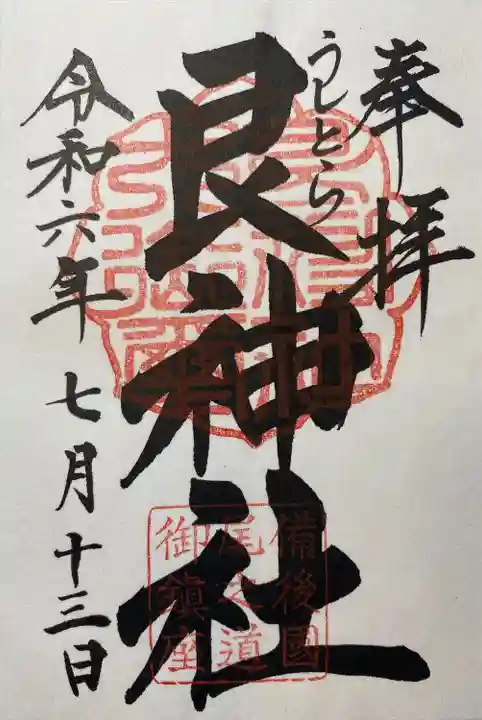 奉拝
うしとら
艮神社
備後國
尾之道
御鎮座
令和六年 七月十三日